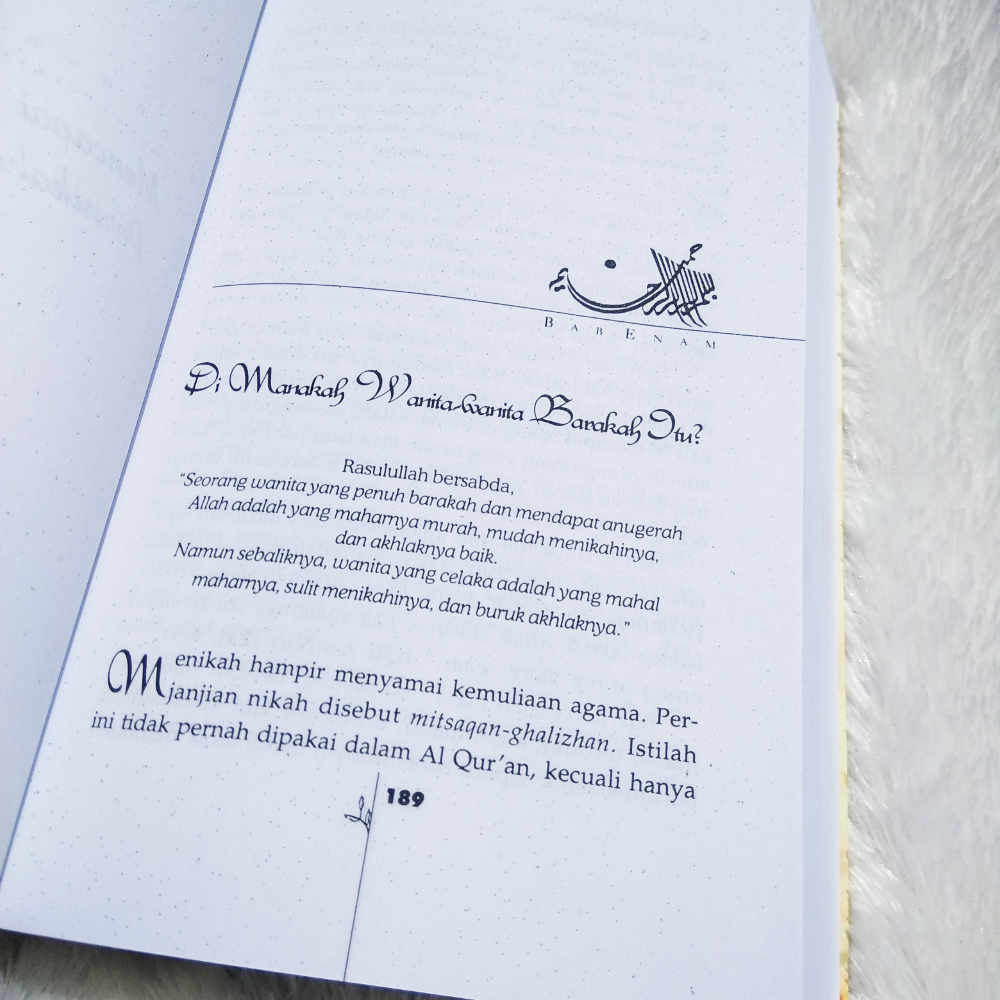 BAB ENAM
Di Manakah Wanita-wanita Barakah Itu?
Rasulullah bersabda,
"Seorang wanita yang penuh barakah dan mendapat anugerah
Allah adalah yang maharnya murah, mudah menikahinya,
dan akhlaknya baik.
Namun sebaliknya, wanita yang celaka adalah yang mahal
maharnya, sulit menikahinya, dan buruk akhlaknya."
Menikah hampir menyamai kemuliaan agama. Per-
janjian nikah disebut mitsaqan-ghalizhan. Istilah
ini tidak pernah dipakai dalam Al Qur'an, kecuali hanya
189